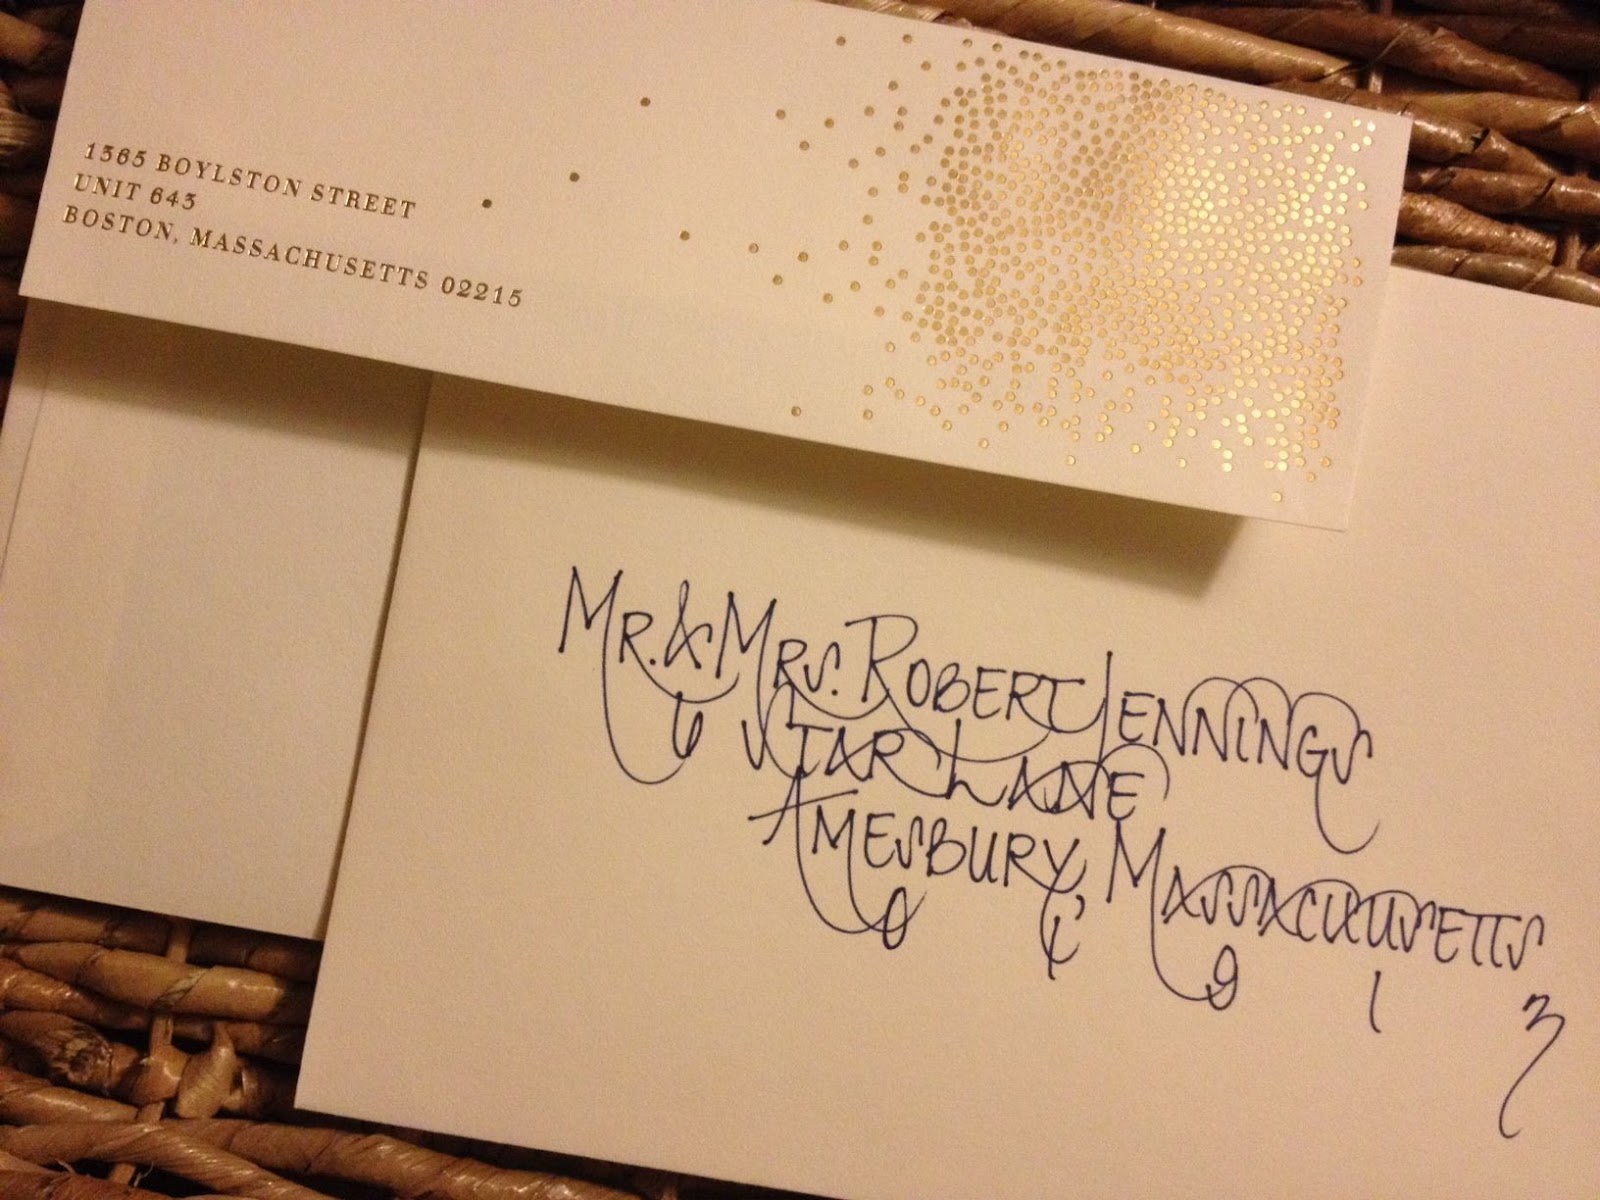 1365 BOYLSTON STREET
UNIT 643
BOSTON, MASSACHUSETTS 02215
MR. & MRS. ROBERT JENNINGS
6 STAR LANE
AMESBURY, MASSACHUSETTS
0 1 9 1 3